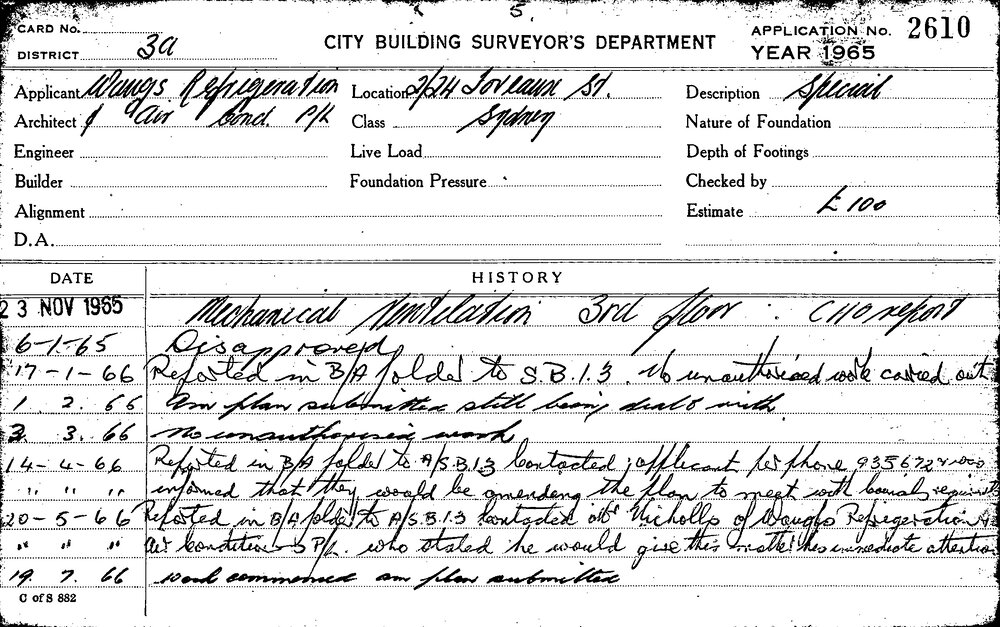 5.
CARD No.
DISTRICT 3a
CITY BUILDING SURVEYOR'S DEPARTMENT
APPLICATION No. 2610
YEAR 1965
Applicant Waugs Refrigeration Location 2/24 Foveaux St. Description Special
Architect & Air Cond. P/L Class Sydney Nature of Foundation
Engineer Live Load Depth of Footings
Builder Foundation Pressure Checked by
Alignment Estimate £100
D.A.
DATE HISTORY
23 NOV 1965 Mechanical Ventilation 3rd floor : CHO report
6-1-65 Disapproved
17-1-66 Reported in B/A folder to S.B.13. No unauthorised work carried out
1. 2. 66 Am plan submitted still being dealt with
3. 3. 66 No unauthorised work
14-4-66 Reported in B/A folder to A/S.B.13 Contacted applicant per phone 935672
" " " informed that they would be amending the plan to meet with
20-5-66 Reported in B/A folder to A/S.B.13 Contacted Mr Nicholls of Waugs Refrigeration
" " " Air Condition P/L. who stated he would give this matter his immediate attention
19. 7. 66 work commenced am plan submitted
C of S 882